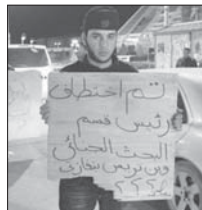 تم اختطاف
رئيس قسم
البحث الجنائي
وين رئيس بنغازي
؟؟؟؟